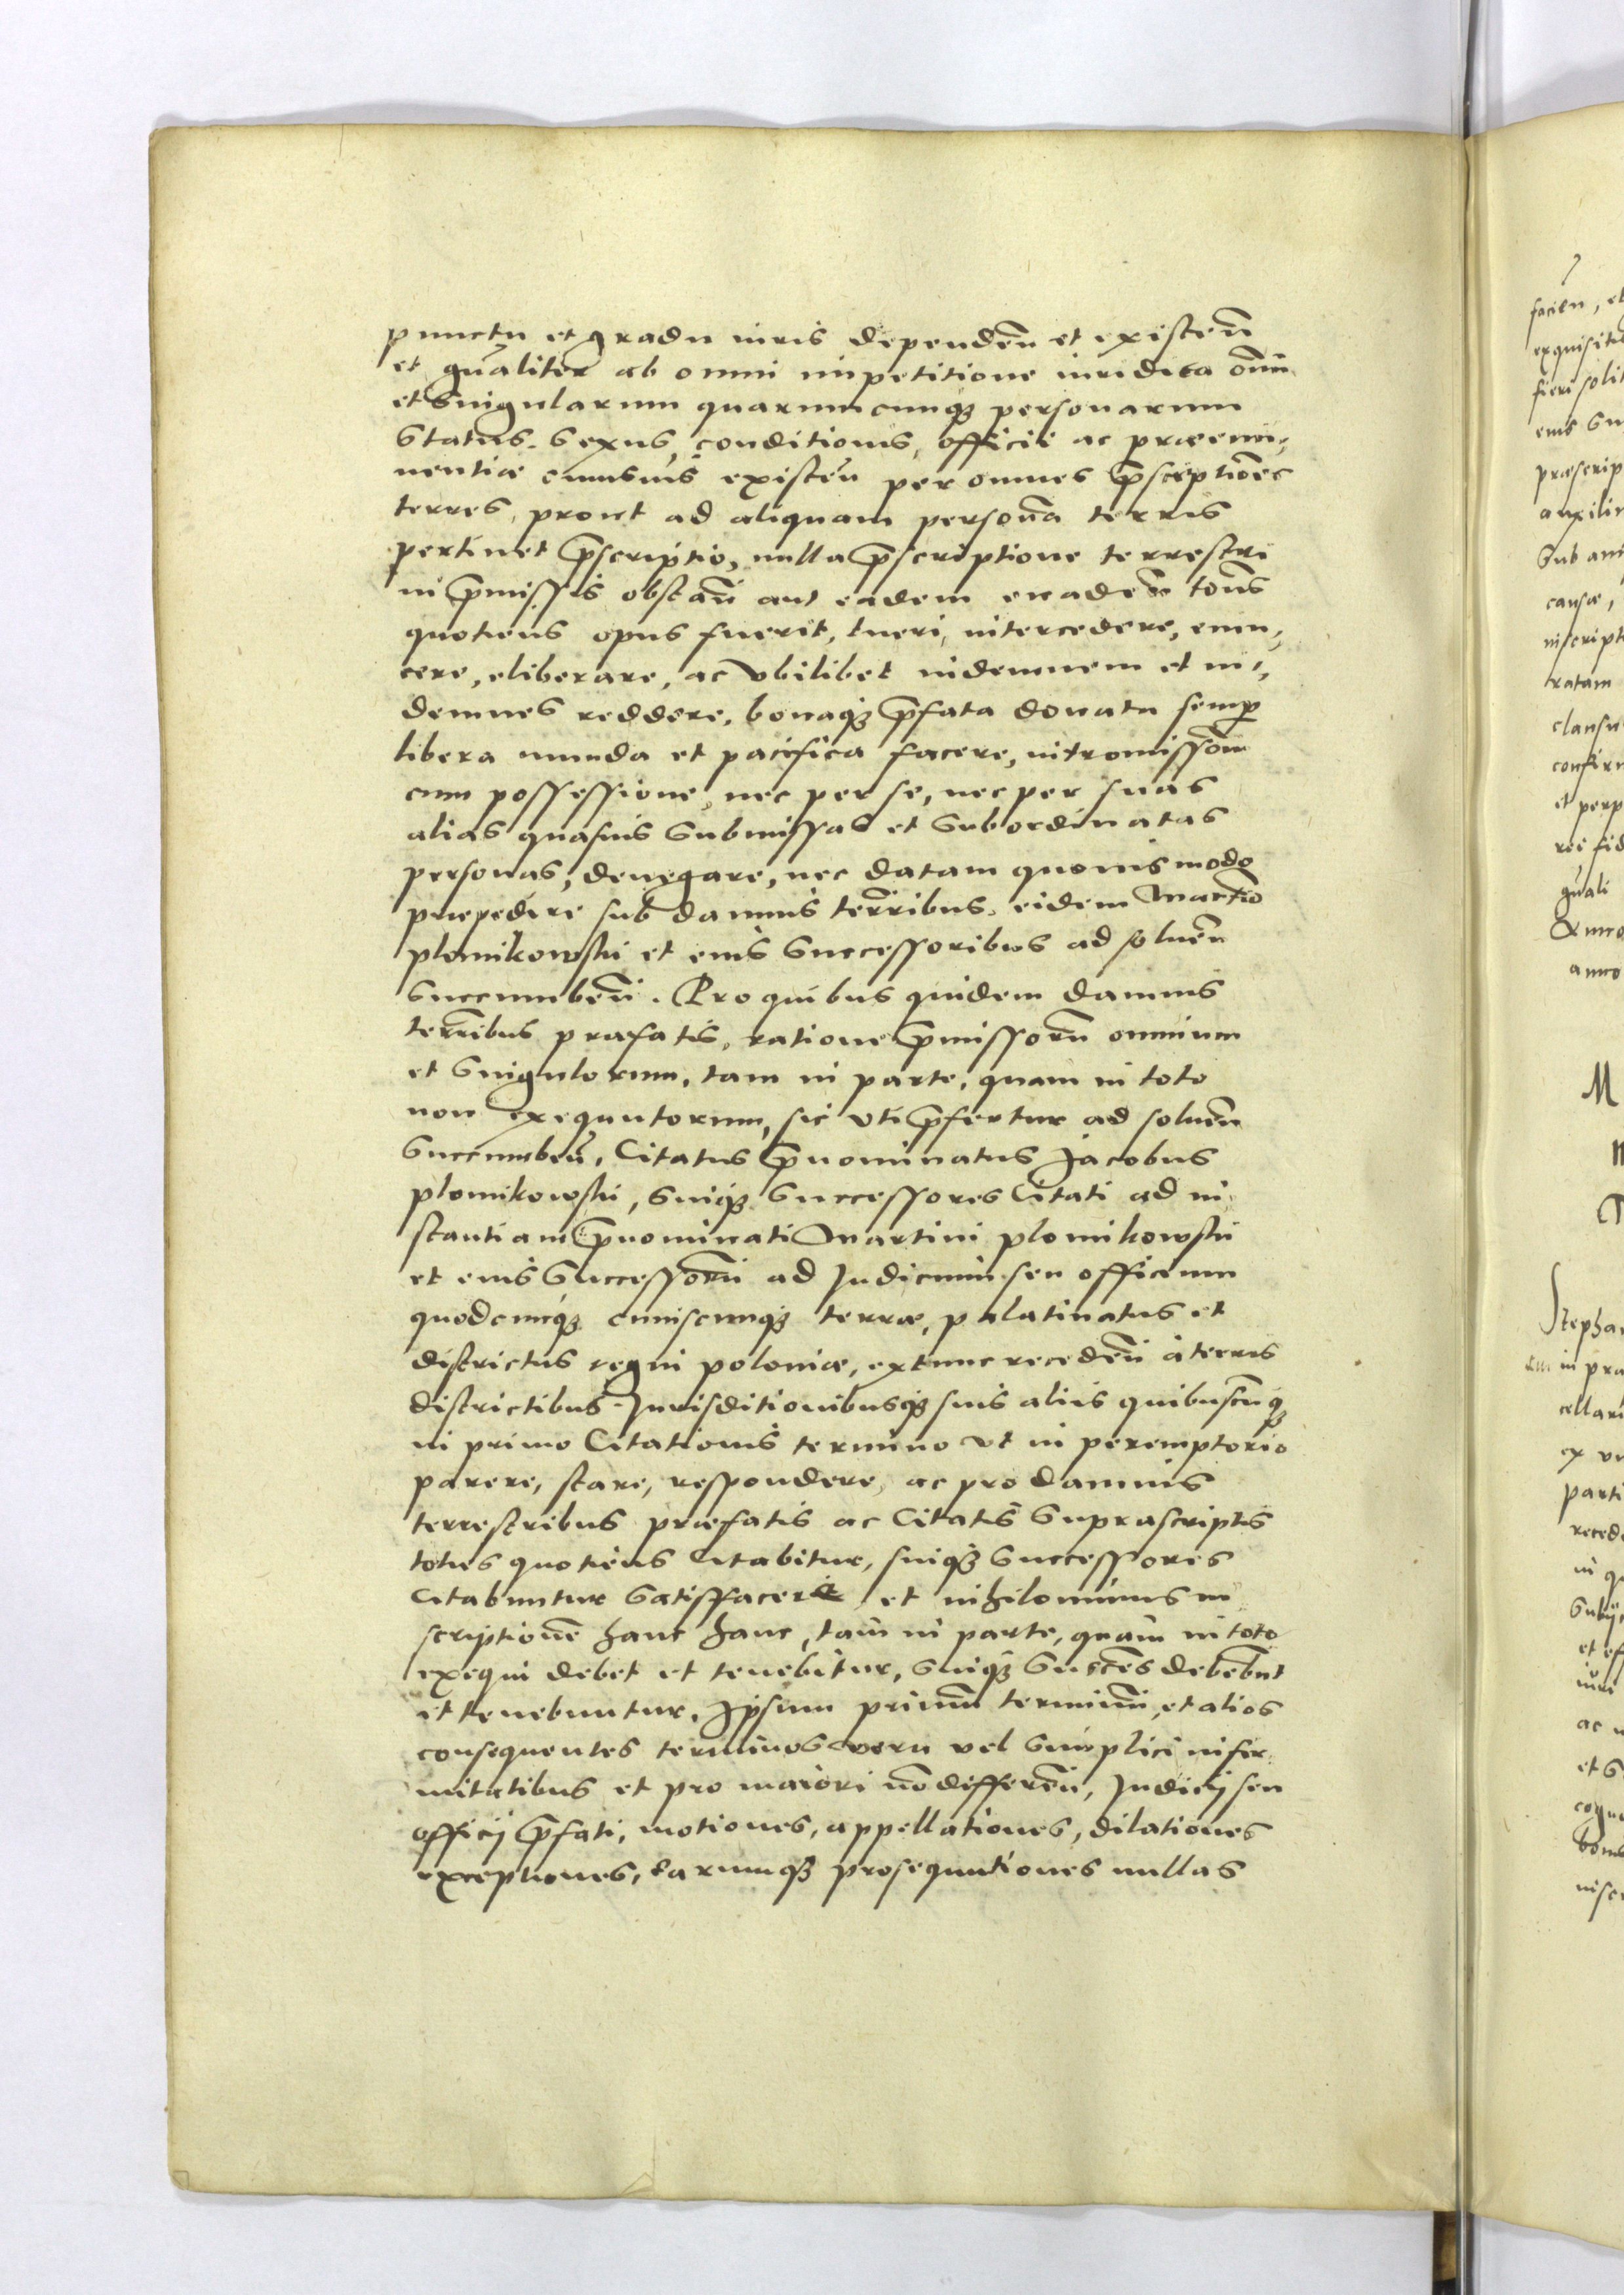 punctu et gradu iuris dependen̄ et existen̄
et gn̄aliter ab omni impetitione iuridica om̄n
et singularum quarumcunq₃ personarum
status. sexus, conditionis, officii ac præemi,
nentiæ cuiusuis existen̄ per omnes p̄scriptiōes
terres, prout ad aliquam persona terris
pertinet p̄scriptio, nulla p̄scriptione terrestri
in p̄missis obstan̄ aut eadem euaden̄ totīes
quotiens opus fuerit, tueri, intercedere, euin,
cere, eliberare, ac vbilibet indemnem et in,
demnes reddere, bonaq₃ p̄fata donata semp̄
libera munda et pacifica facere, intromissōm
cum possessione, nec per se, nec per suas
alias quasuis submissas et subordinatas
personas, denegare, nec datam quouismodo
præpedire sub damnis terribus. eidem Martīo
plomikowski et eius successoribus ad soluen̄
succumben̄. Pro quibus quidem damnis
terribus præfatis, ratione p̄missorū omnium
et singulorum, tam in parte, quam in toto
non exequutorum, sic vti p̄fertur ad soluen̄
succumben̄, Citatus p̄nominatus Jacobus
plomikowski, suiq₃ successores Citati ad in
stantiam p̄nominati Martini plomikowski
et eius successorū ad Judicium seu officium
quodcunq₃ cuiuscunq₃ terræ, palatinatus et
districtus regni poloniæ, extunc receden̄ à terris
districtibus Jurisditionibusq₃ suis aliis quibuscūq₃
in primo Citationis termino vt in peremptorio
parere, stare, respondere, ac pro damnis
terrestribus præfatis ac Citatis suprascriptis
toties quotiens citabitur, suiq₃ successores
citabuntur satisfacere et nihilominus in
scriptionē hanc hanc, tam in parte, quam in toto
exequi debet et tenebitur, suiq₃ succēs debebūt
et tenebuntur, Ipsum primū terminū, et alios
consequentes terminos vera vel simplici infir
mitatibus et pro maiori nō differen̄, Judicij seu
officij p̄fati, motiones, appellationes, dilationes
exceptiones, earumq₃ prosequutiones nullas
facien, et
fieri solit
eius su
præscrip
auxilir
Sub ani
causæ,
inscript
ratam
clausu
confirm
et perp
rei fid
M
Stephan
in pra
cellari
ex
parti
recede
in
et ef
iuri
ac
et s